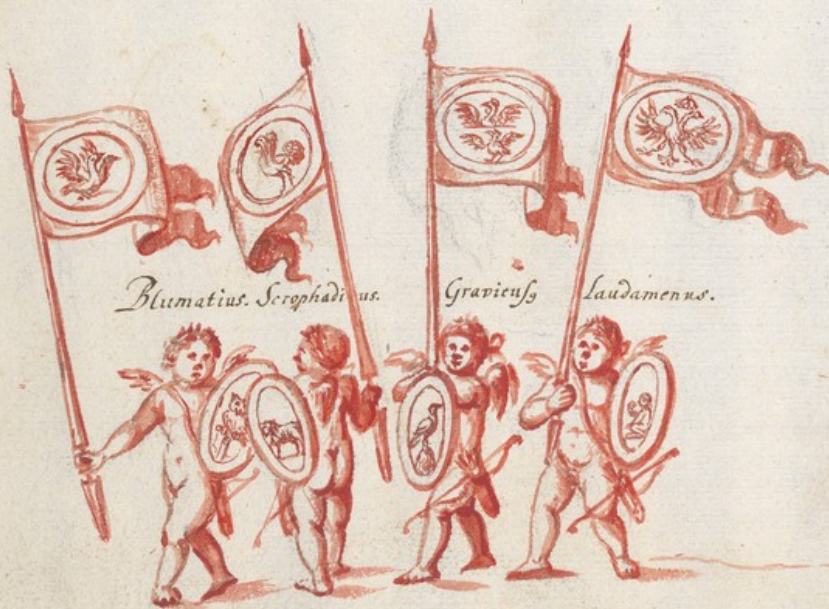 Blumatius. Scrophadicus. Graviensꝰ Laudamenus.